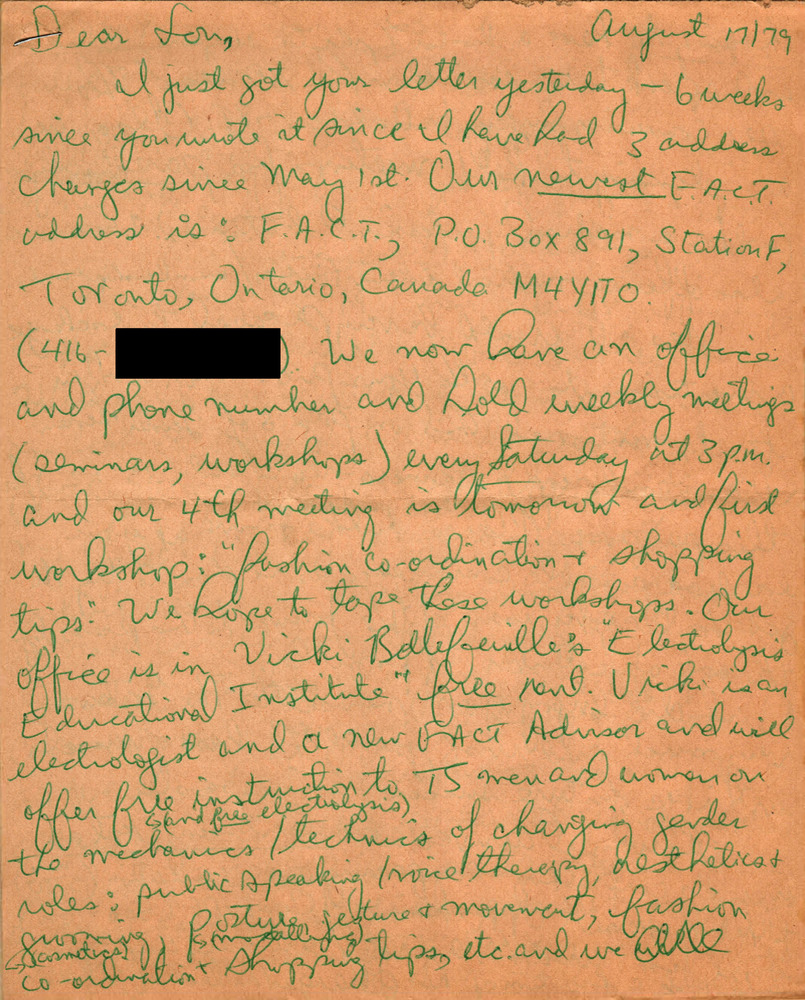 Dear Lou, August 17/79
I just got your letter yesterday – 6 weeks
since you wrote it since I have had 3 address
changes since May 1st. Our newest F.A.C.T.
address is: F.A.C.T., P.O. Box 891, Station F,
Toronto, Ontario, Canada M4Y1T0.
(416- ). We now have an office
and phone number and hold weekly meetings
(seminars, workshops) every Saturday at 3 p.m.
and our 4th meeting is tomorrow and first
workshop: "fashion co-ordination + shopping
tips." We hope to tape these workshops. Our
office is in Vicki Bellefeuille's "Electrolysis
Educational Institute" free rent. Vicki is an
electrologist and a new FACT Advisor and will
offer free instruction to TS men and women on
(and free electrolysis)
the mechanics/technics of changing gender
roles: public speaking/voice therapy, aesthetics +
grooming, posture, gesture + movement, fashion
(cosmetics)
co-ordination + shopping tips, etc. and we